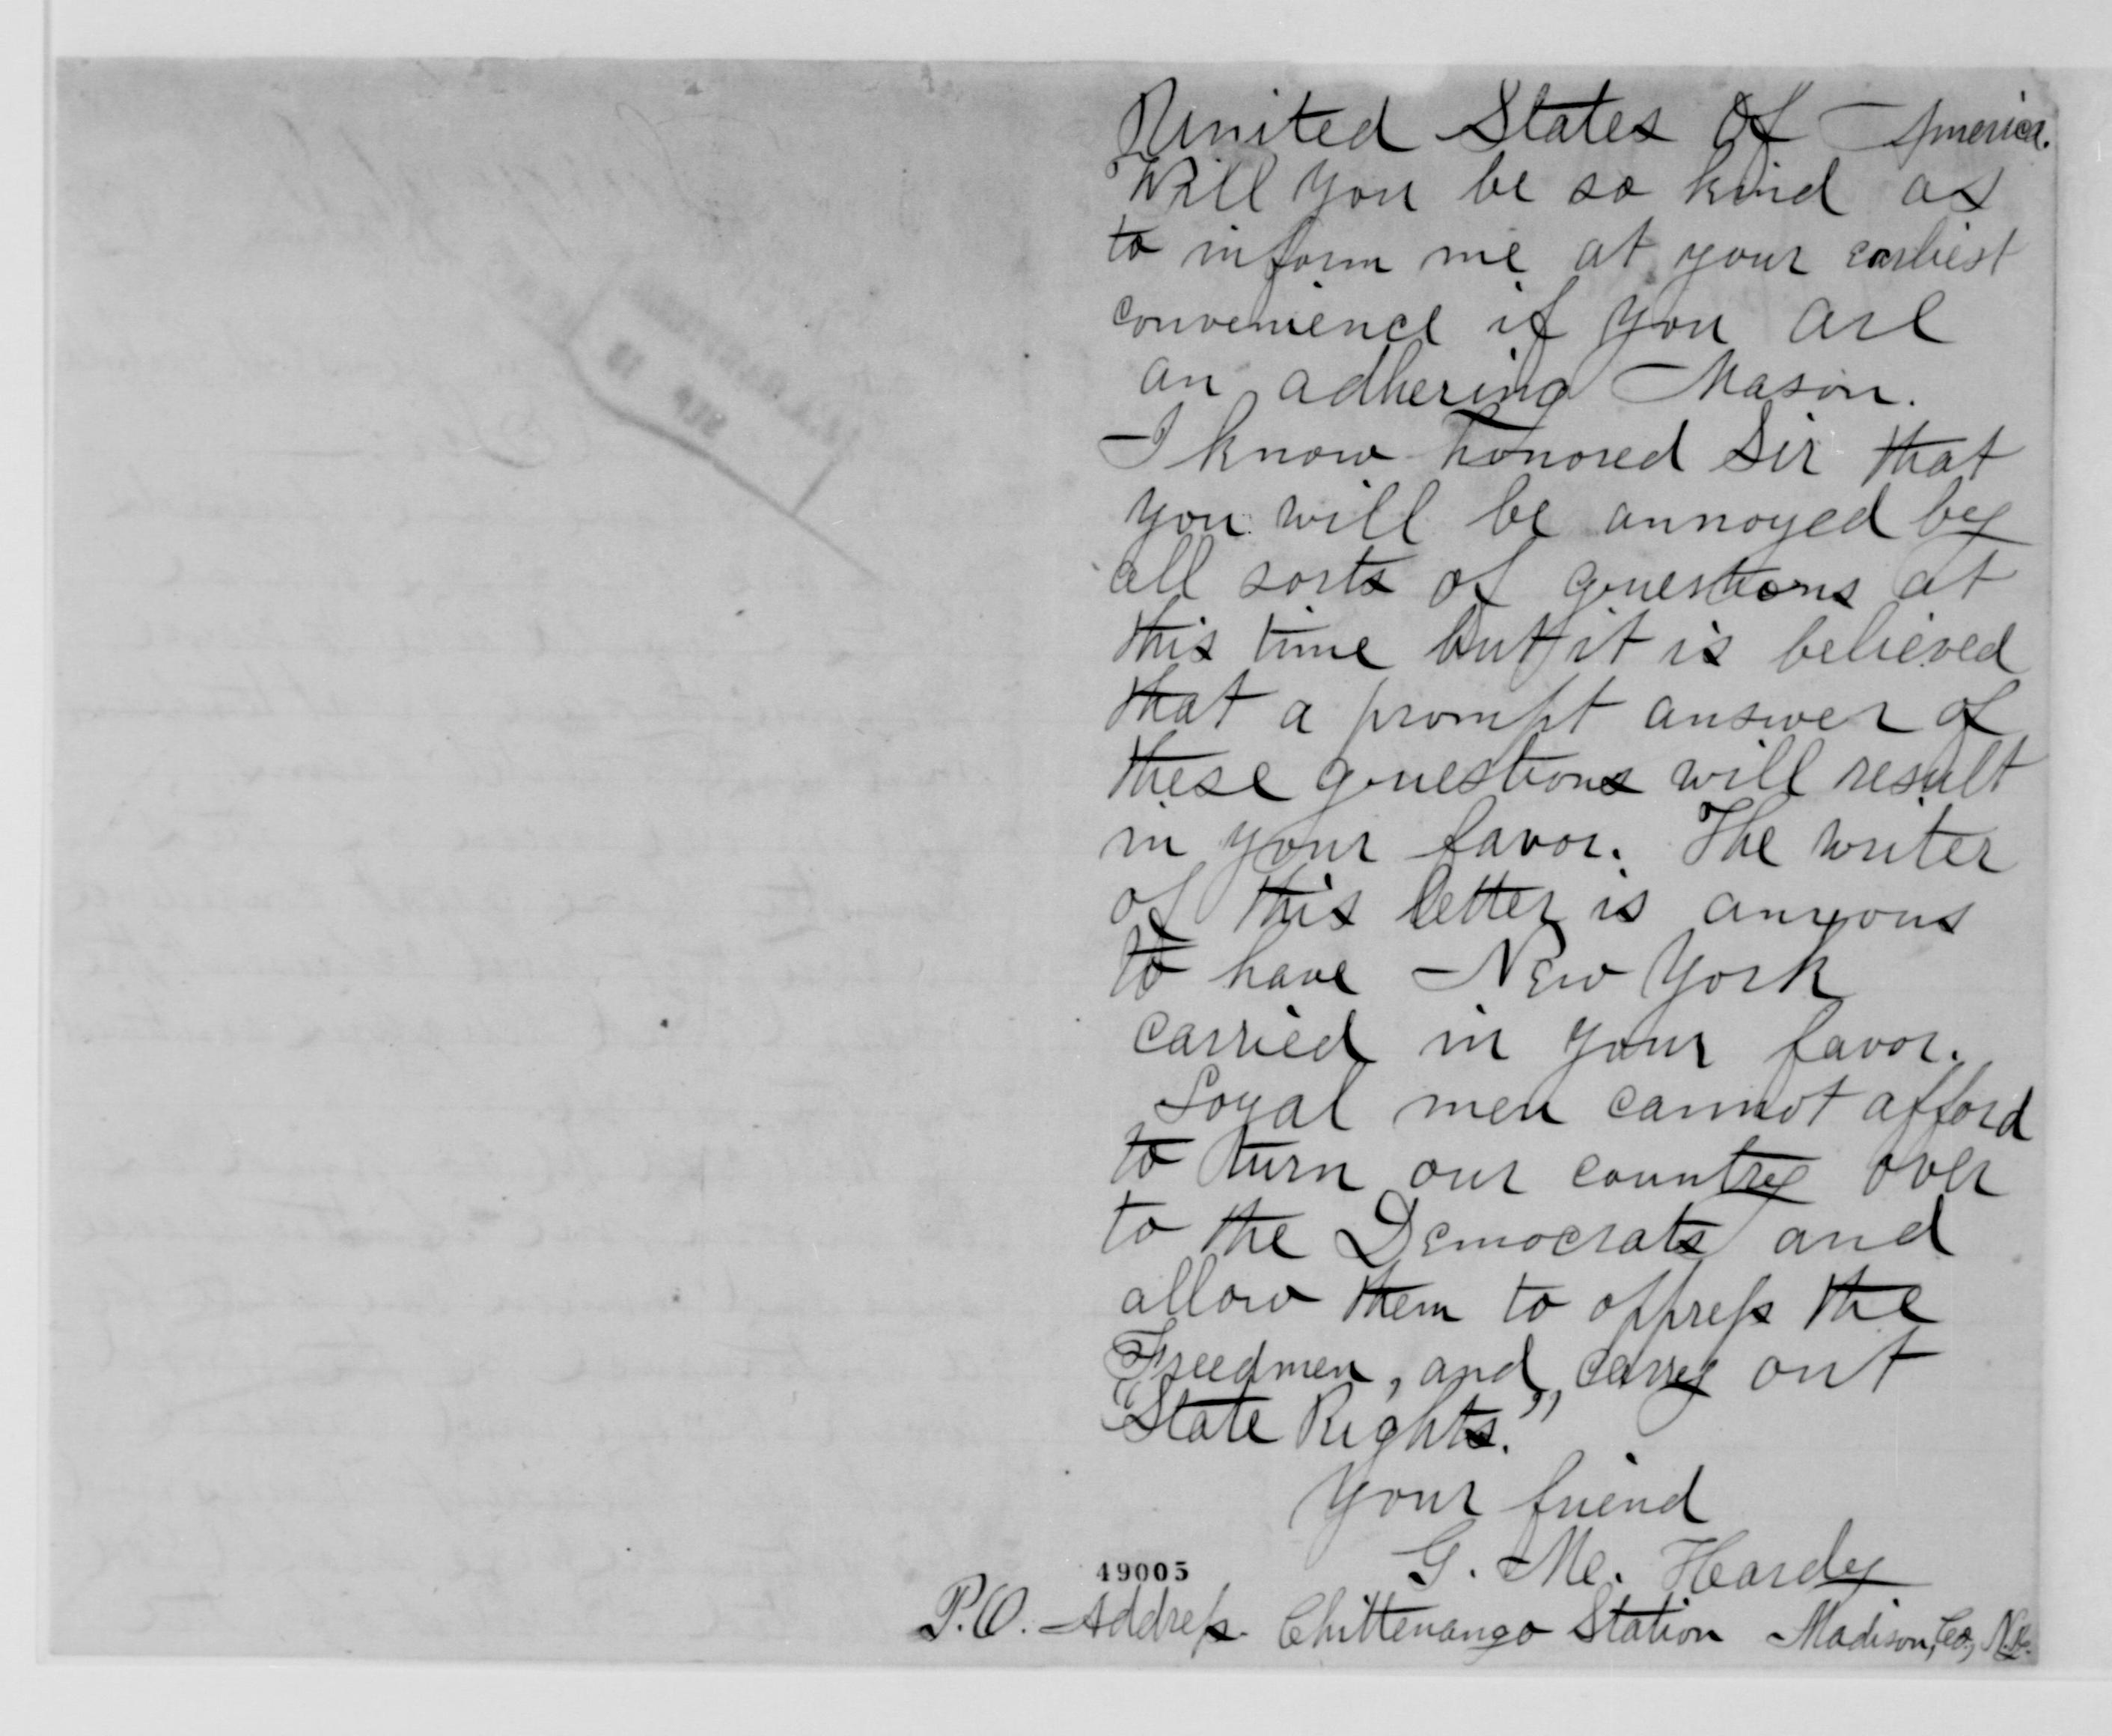 United States Of America.
Will you be so kind as
to inform me at your earliest
convenience if you are
an adhering Mason.
I know honored Sir that
you will be annoyed by
all sorts of questions at
this time but it is believed
that a prompt answer of
these questions will result
in your favor. The writer
of this letter is anxious
to have New York
carried in your favor.
Loyal men cannot afford
to turn our country over
to the Democrats and
allow them to oppress the
Freedmen, and carry out
"State Rights."
Your friend
G. Mc. Hardy
49005
P.O. Address. Chittenango Station Madison, Co., N.Y.